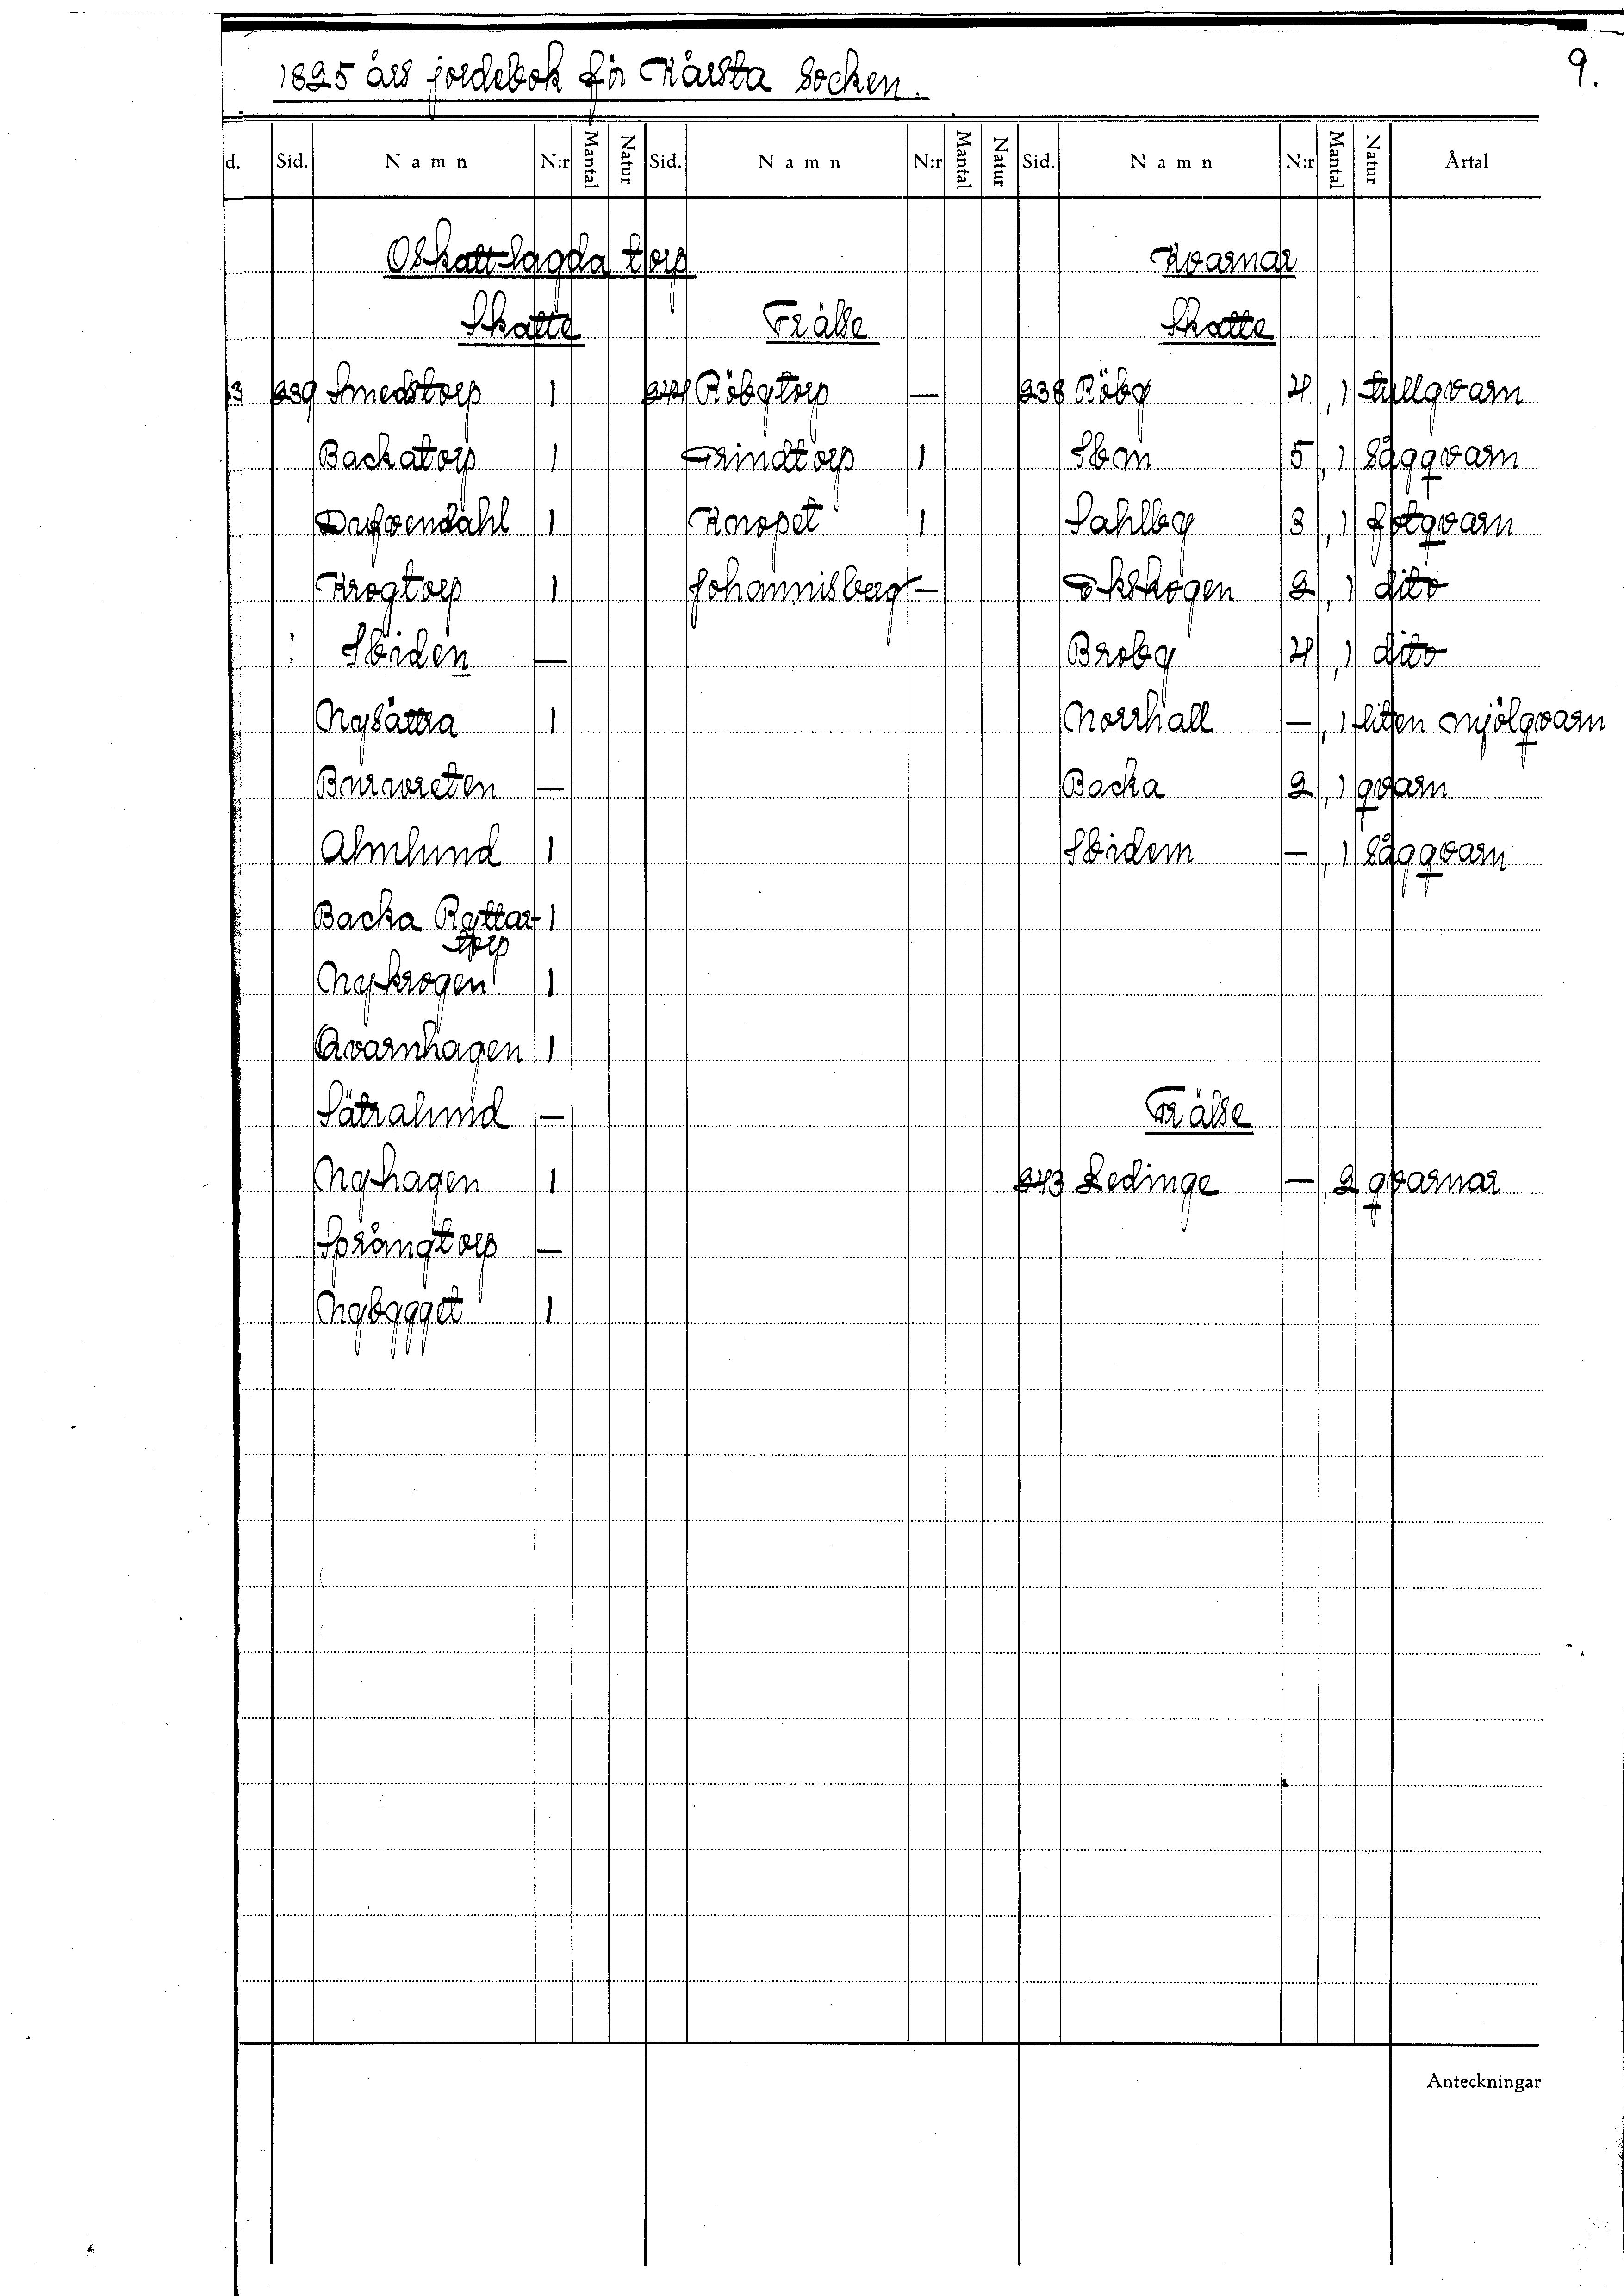 9.
1825 års jordebok för Kårsta Socken.
d. Sid. Namn N:r Mantal Natur Sid. Namn N:r Mantal Natur Sid. Namn N:r Mantal Natur Årtal
Oskattlagda torp Kvarnar
Skatte Frälse Skatte
3 239 Smedstorp 1 244 Röbytorp — 238 Röby 4 , 1 tullqvarn
Backatorp 1 Grindtorp 1 5 , 1 Sågqvarn
Dufvendahl 1 Knopet 1 Sahlby 3 , 1 fotqvarn
Krogtorp 1 Johannisberg — Ekskogen 2 , 1 dito
! — Broby 4 , 1 dito
Nysättra 1 Norrhall — , 1 liten mjölqvarn
Burvreten — Backa 2 , 1 qvarn
Almlund 1 — , 1 Sågqvarn
Backa Ryttar- 1
torp
Nykrogen 1
Qvarnhagen 1
Sätralund — Frälse
Nyhagen 1 243 Ledinge — , 2 qvarnar
Språngtorp —
Nybygget 1
Anteckningar